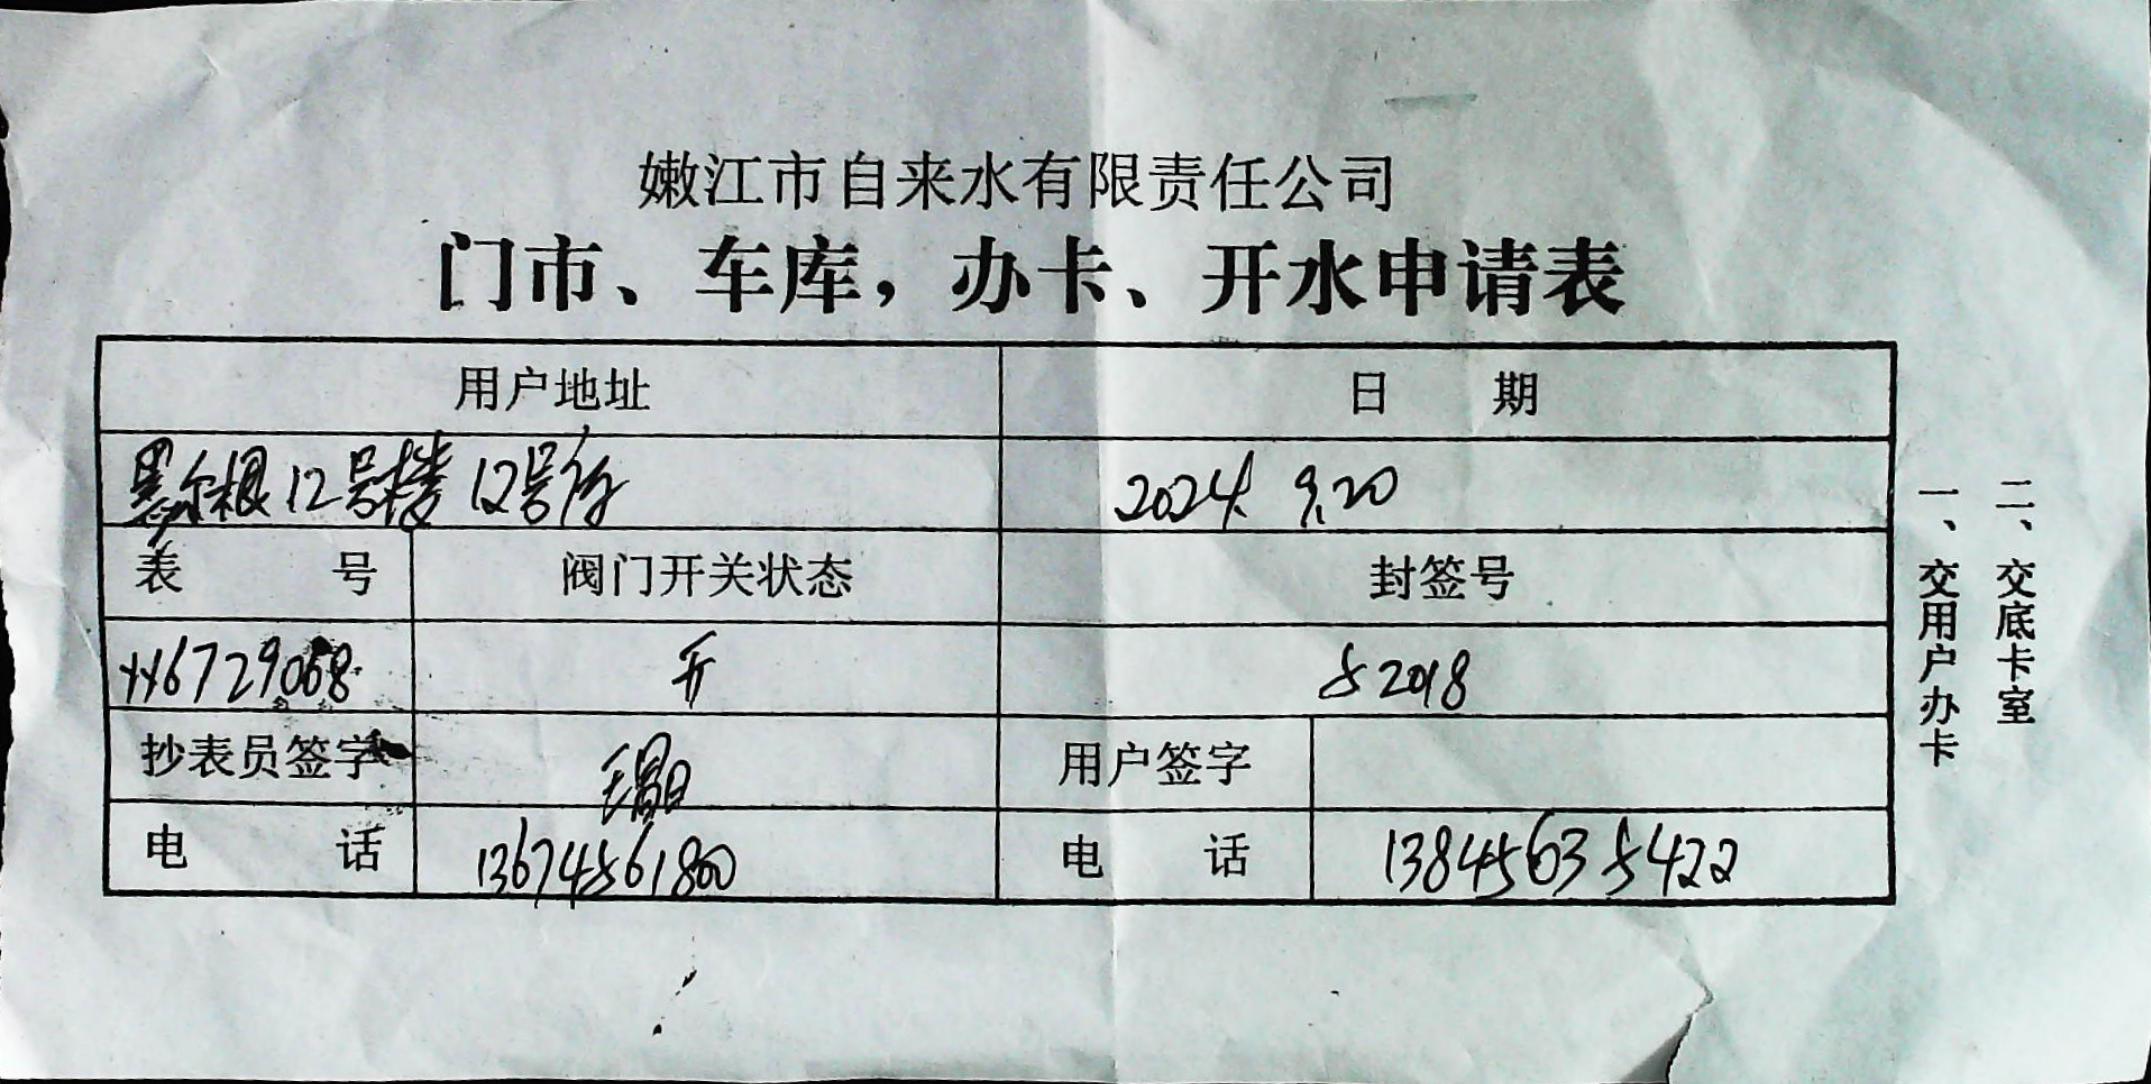 嫩江市自来水有限责任公司
门市、车库，办卡、开水申请表
用户地址 日 期
墨尔根12号楼 12号 2024. 9.20
表 号 阀门开关状态 封签号
6729068 开 52018
抄表员签字 用户签字
电 话 13674561800 电 话 13845635422
一、交用户办卡
二、交底卡室